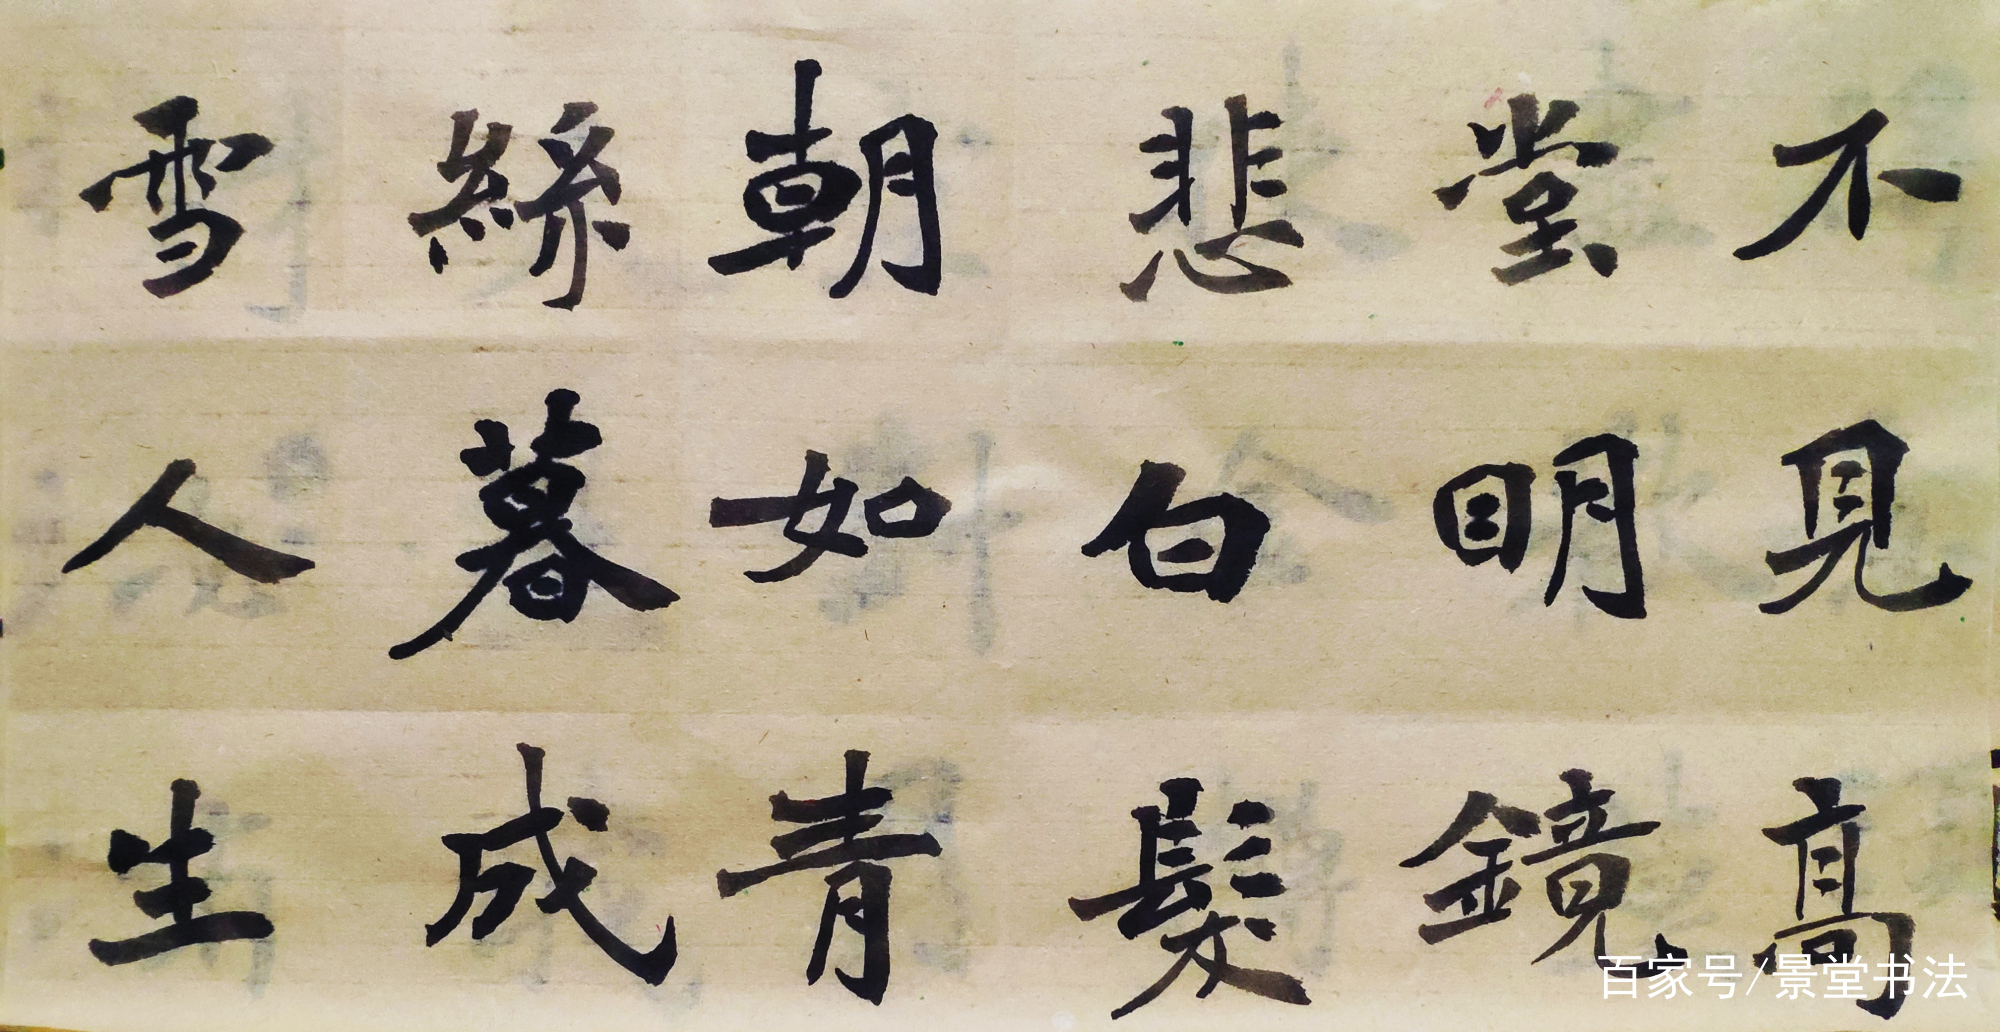 不見高
堂明鏡
悲白髮
朝如青
絲暮成
雪人生
百家号/景堂书法